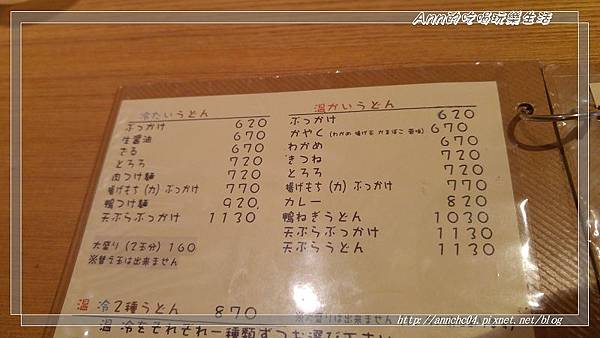 Ann的吃喝玩樂生活
冷たいうどん
ぶっかけ 620
生醤油 670
ざる 670
とろろ 720
肉つけ麺 720
揚げもち (力) ぶっかけ 770
鴨つけ麺 920
天ぷらぶっかけ 1130
大盛り (2玉分) 160
※替え玉は出来ません
温かいうどん
ぶっかけ 620
かやく (わかめ 揚げ玉 かまぼこ 香味) 670
わかめ 670
きつね 720
とろろ 720
揚げもち (力) ぶっかけ 770
カレー 820
鴨ねぎうどん 1030
天ぷらぶっかけ 1130
天ぷらうどん 1130
温 冷2種うどん 870 ※大盛りは出来ません
温 冷をそれぞれ一種類ずつお選び下さい
http://annchc04.pixnet.net/blog